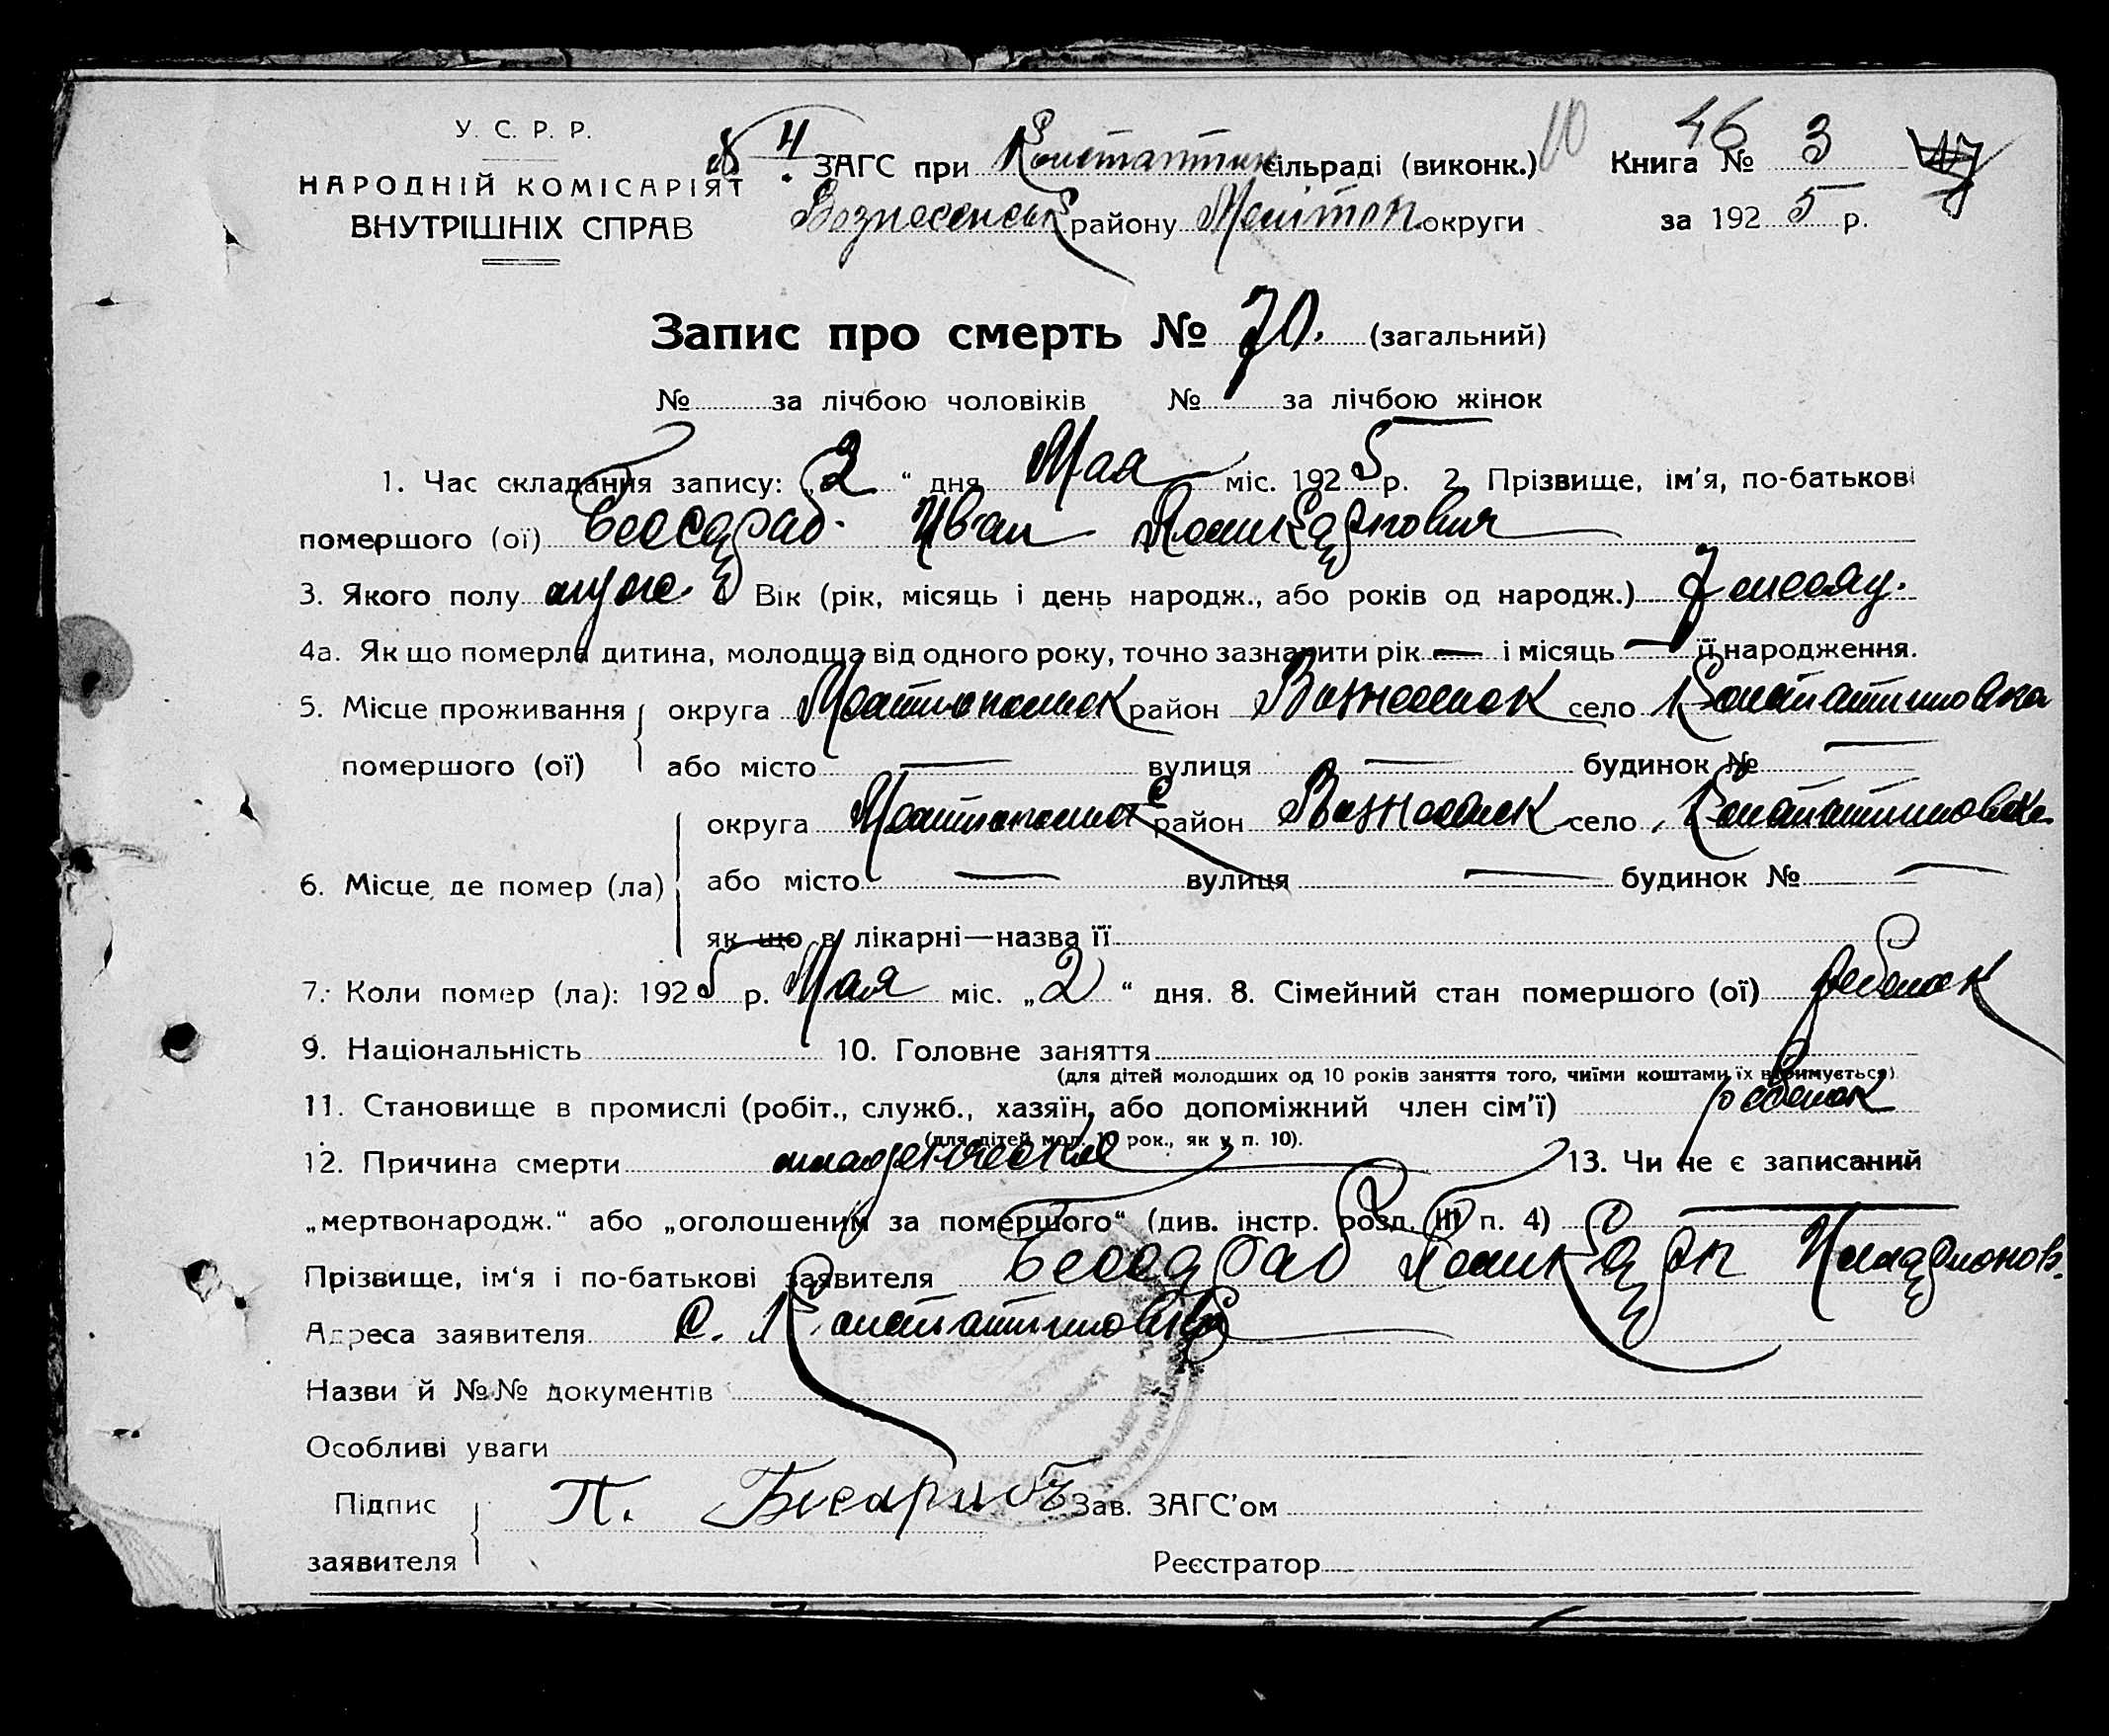 У. С. Р. Р.
НАРОДНІЙ КОМІСАРІЯТ
ВНУТРІШНІХ СПРАВ
4 ЗАГС при Константин сільраді (виконк.) 10
Вознесенськ району Мелітоп округи
46
Книга № 3
за 1925 р.
Запис про смерть № 70. (загальний)
№ за лічбою чоловіків № за лічбою жінок
1. Час складання запису: „2“ дня Мая міс. 1925 р. 2. Прізвище, ім'я, по-батькові
помершого (ої) Бесараб Иван Поликарпович
3. Якого полу муж. Вік (рік, місяць і день народж., або років од народж.) 7 месяц.
4а. Як що померла дитина, молодша від одного року, точно зазначити рік — і місяць — її народження.
5. Місце проживання округа Мелитопольск район Вознесенск село Константиновка
помершого (ої) або місто — вулиця — будинок № —
округа Мелитопольск район Вознесенск село Константиновка
6. Місце, де помер (ла) або місто — вулиця — будинок № —
як що в лікарні—назва її
7. Коли помер (ла): 1925 р. Мая міс. „2“ дня. 8. Сімейний стан помершого (ої) ребенок
9. Національність 10. Головне заняття
(для дітей молодших од 10 років заняття того, чиїми коштами їх втримується)
11. Становище в промислі (робіт., служб., хазяїн, або допоміжний член сім'ї) ребенок
(для дітей мол. 10 рок., як у п. 10).
12. Причина смерти младенческая 13. Чи не є записаний
„мертвонародж.“ або „оголошеним за помершого“ (див. інстр. розд. III п. 4) —
Прізвище, ім'я і по-батькові заявителя Бесараб Поликарп
Адреса заявителя с. Константиновка
Назви й №№ документів
Особливі уваги
Підпис заявителя П. Бесараб Зав. ЗАГС'ом
Реєстратор